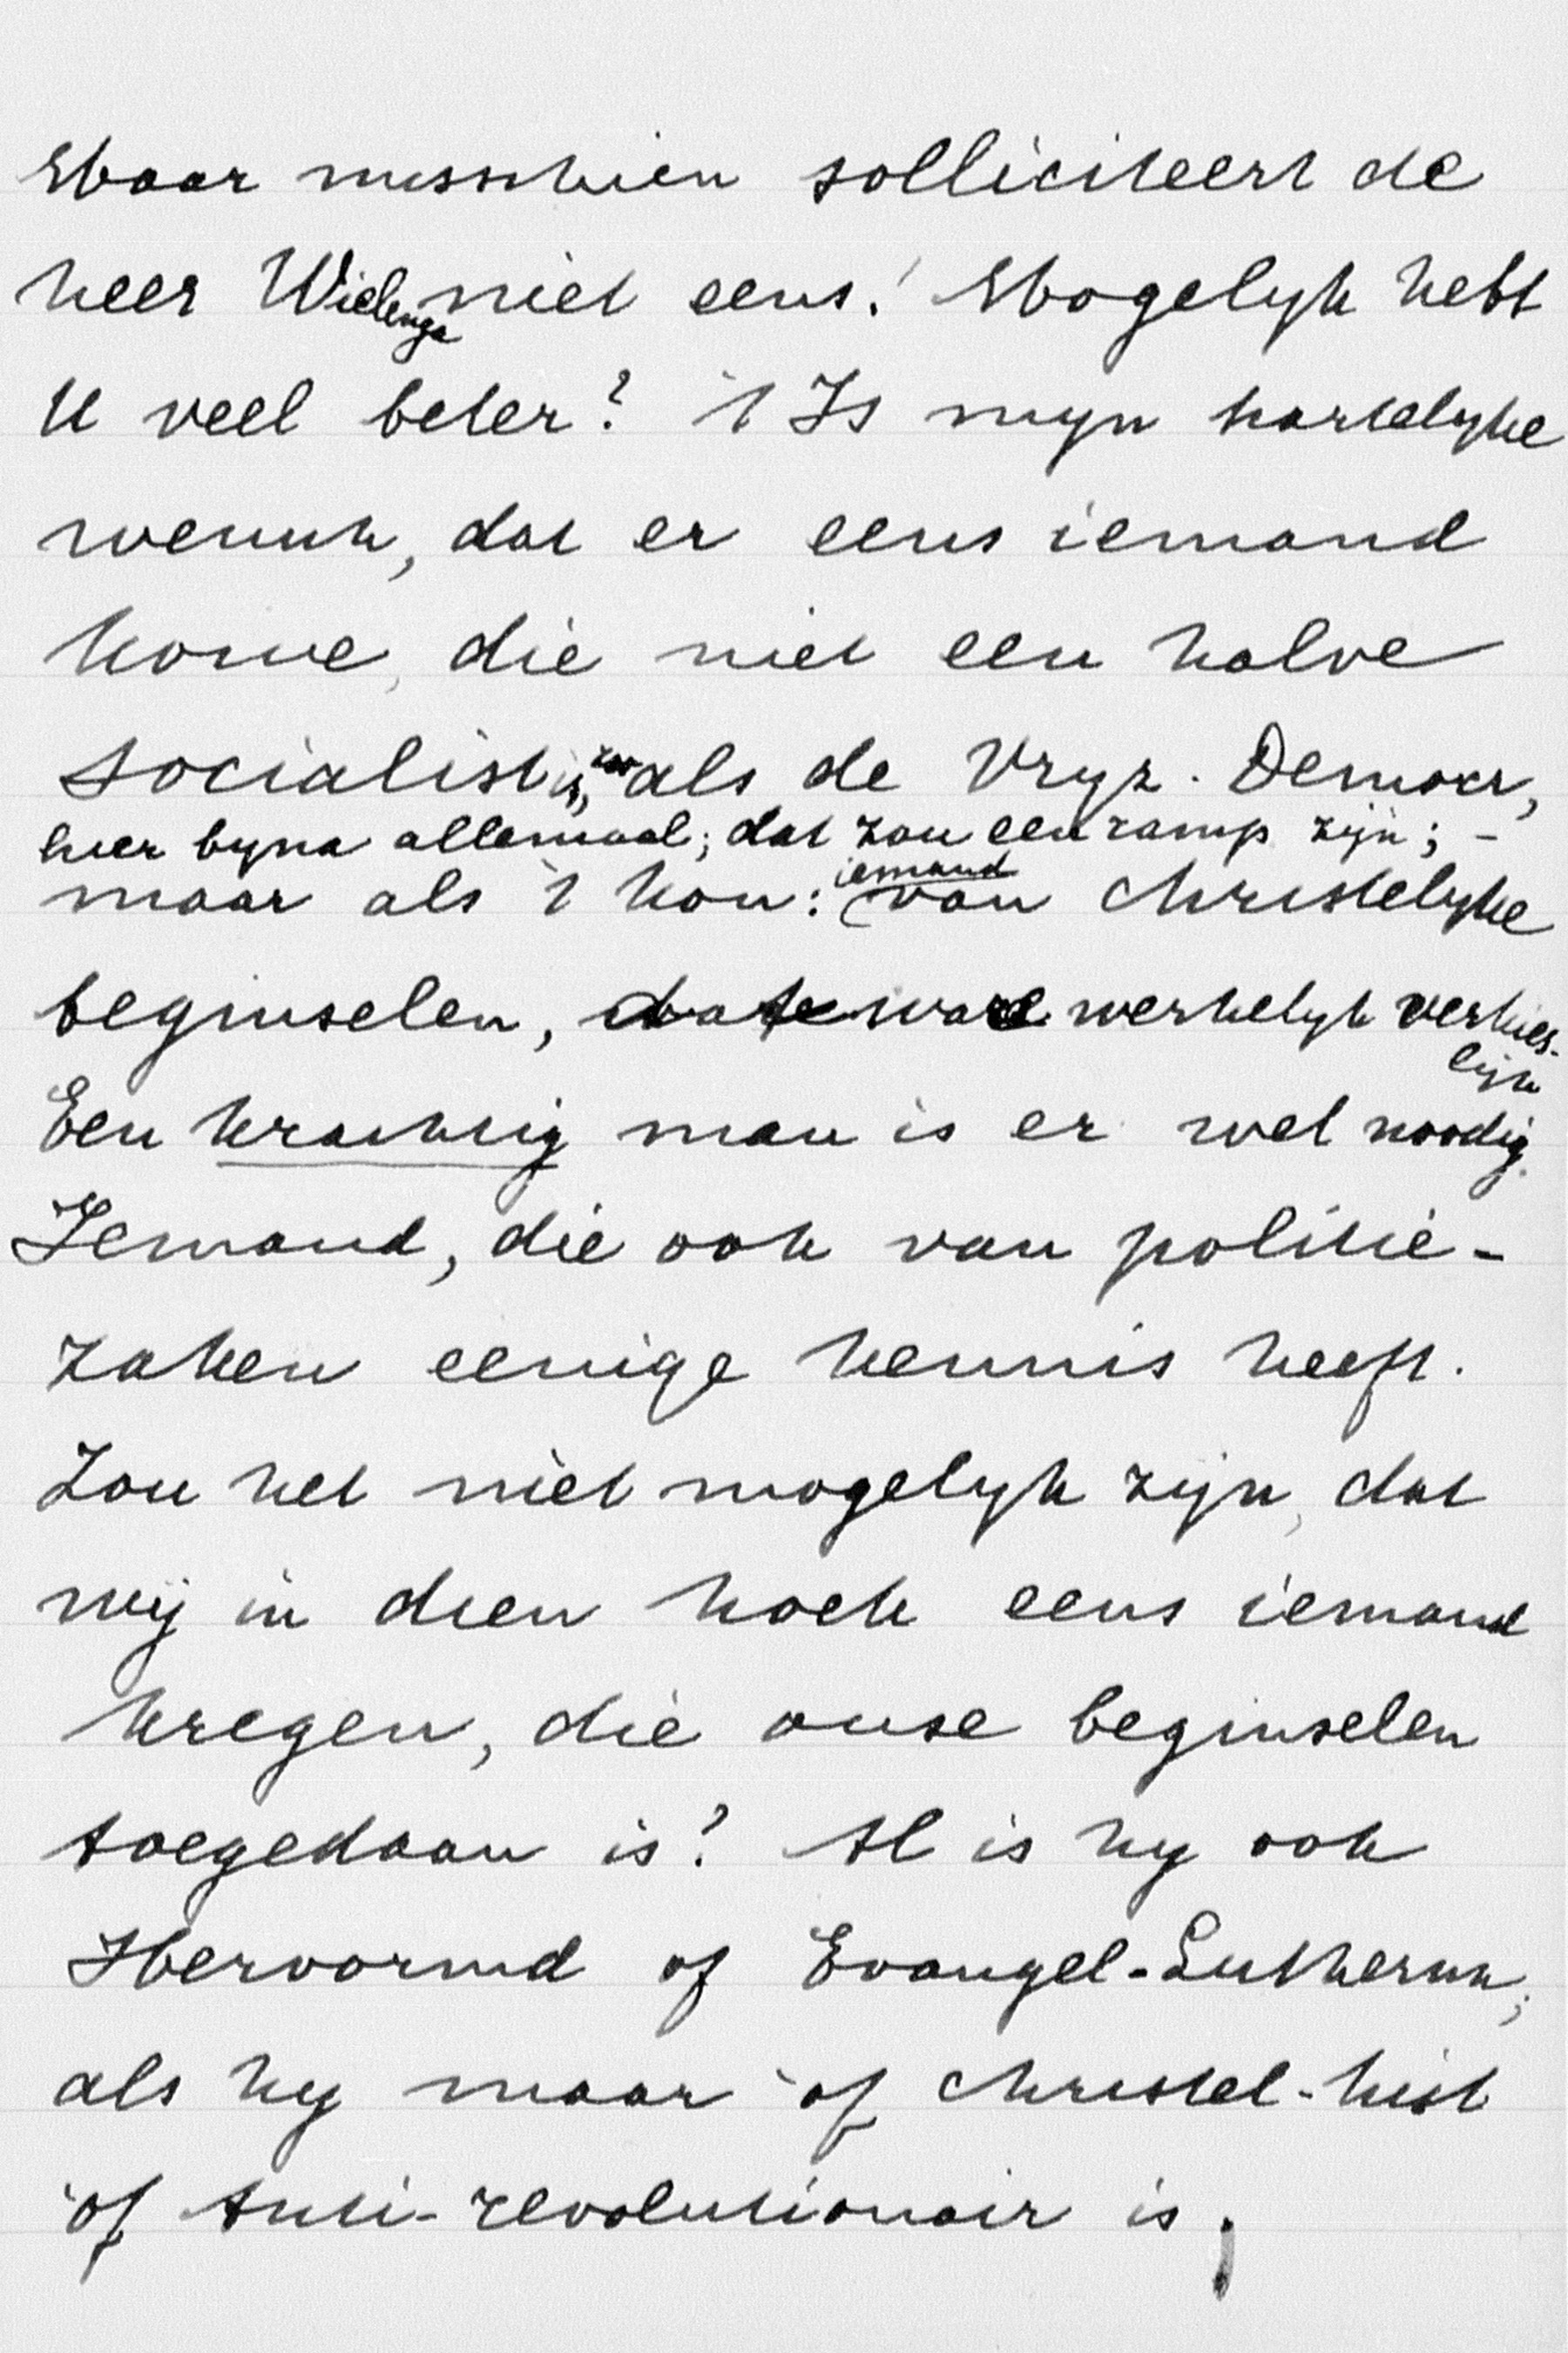 Maar misschien solliciteert de
heer Wielenga niet eens! Mogelyk hebt
U veel beter? 't Is myn hartelyke
wensch, dat er eens iemand
kome, die niet een halve
socialist is, zooals de Vryz. Democr,
hier byna allemaal; dat zou een ramp zijn; -
maar als 't kon: iemand van Christelyke
beginselen, ware werkelyk verkies-
lijk
Een krachtig man is er wel noodig.
Iemand, die ook van politie-
zaken eenige kennis heeft.
Zou het niet mogelyk zijn, dat
wij in dien hoek eens iemand
kregen, die onse beginselen
toegedaan is? Al is hy ook
Hervormd of Evangel-Luthersch,
als hy maar òf christel-hist
òf Anti-revolutionair is;